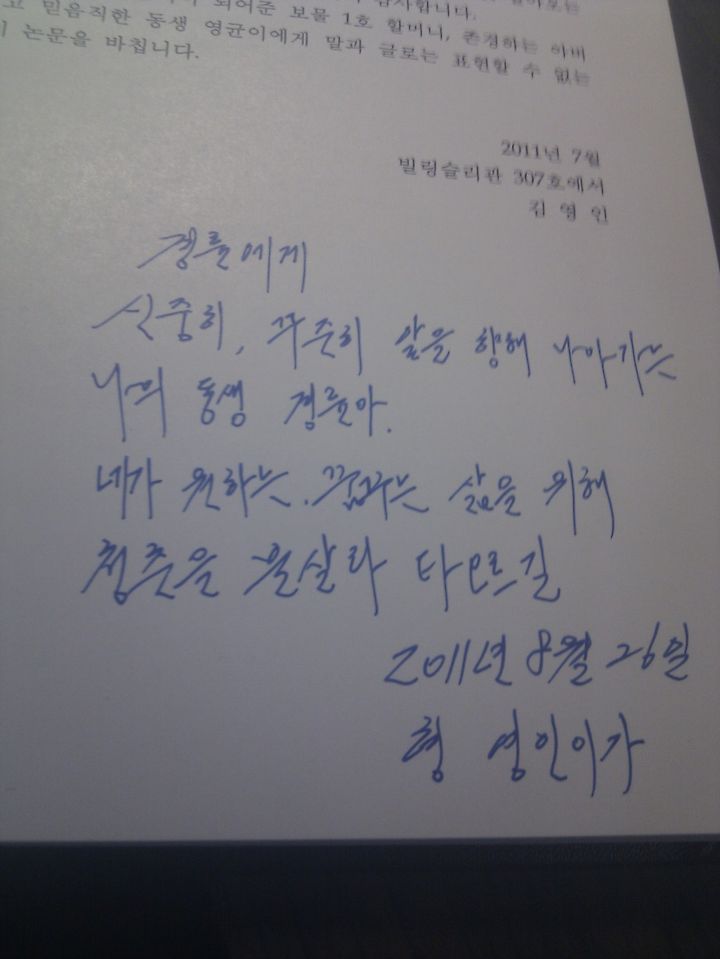 되어준 보물 1호 할머니, 존경하는 아버
고 믿음직한 동생 영균이에게 말과 글로는 표현할 수 없는
논문을 바칩니다.
2011년 7월
빌링슬리관 307호에서
김 영 인
경륜에게
신중히, 꾸준히 앞을 향해 나아가는
나의 동생 경륜아.
네가 원하는, 꿈꾸는 삶을 위해
청춘을 불살라 타오르길
2011년 8월 26일
형 영인이가